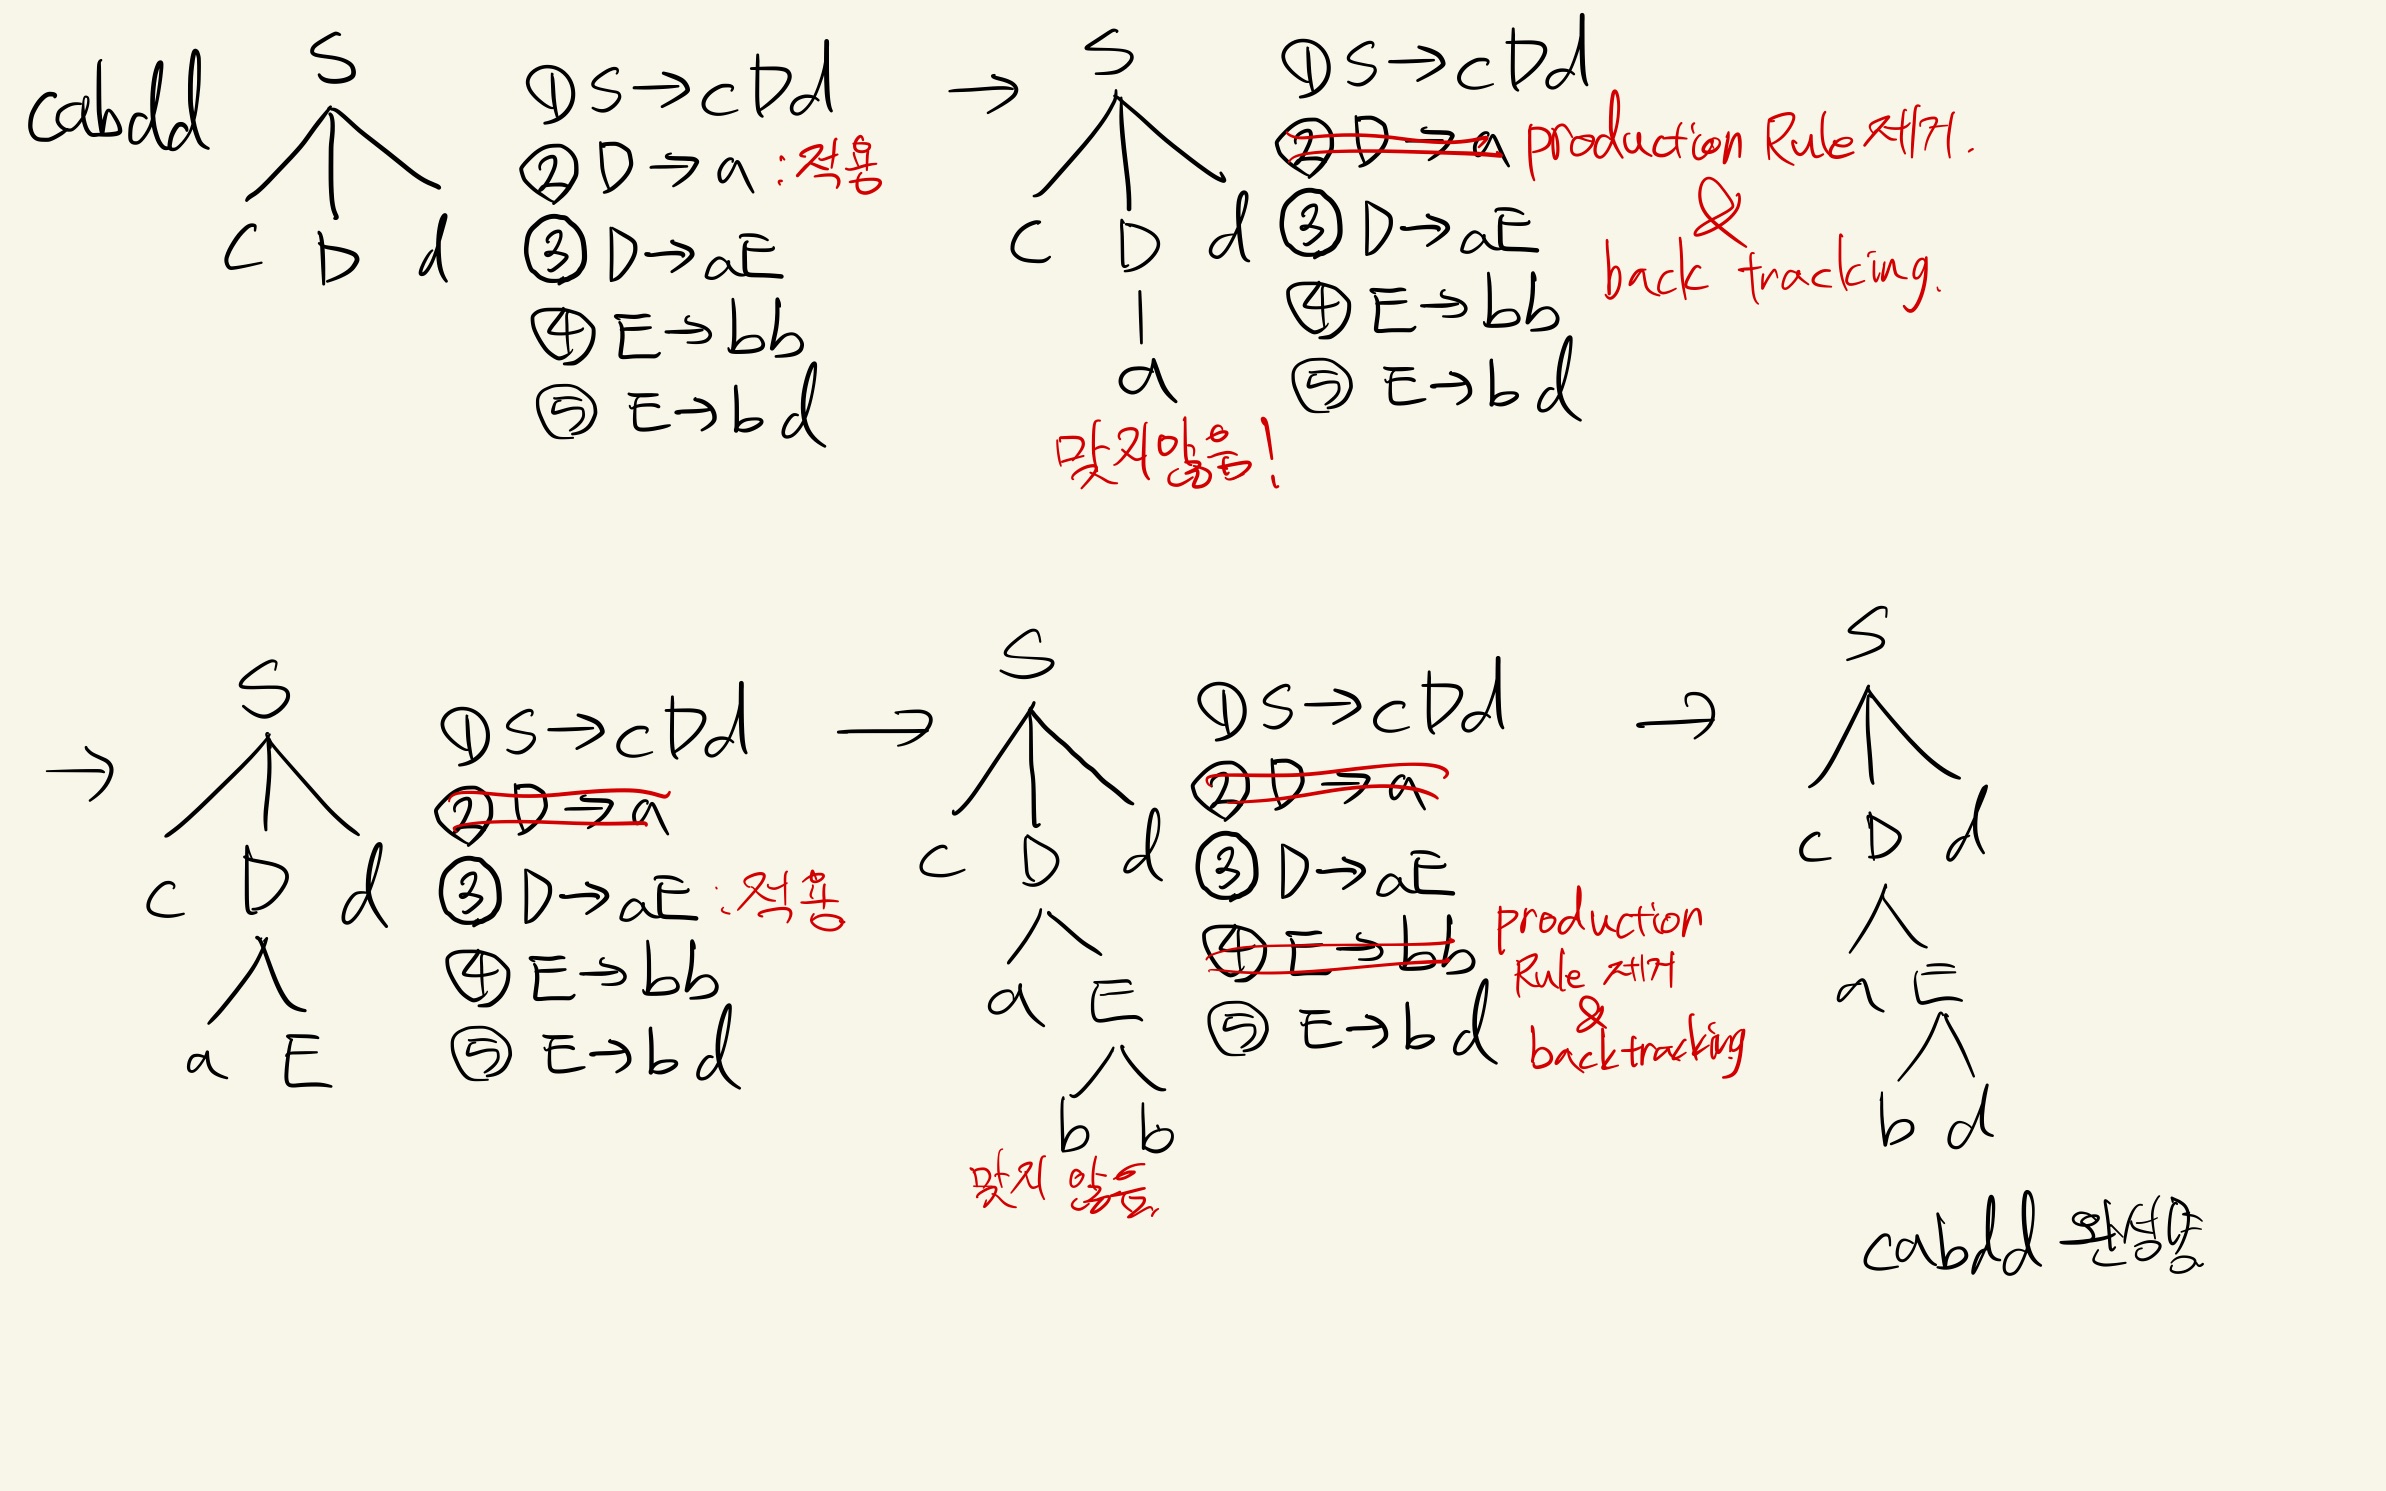 cabdd
S
c D d
① S→cDd
② D→a :적용
③ D→aE
④ E→bb
⑤ E→bd
→
S
c D d
a
맞지않음!
① S→cDd
② D→a production Rule 제거.
&
③ D→aE
back tracking.
④ E→bb
⑤ E→bd
→
S
c D d
a E
① S→cDd
② D→a
③ D→aE :적용
④ E→bb
⑤ E→bd
→
S
c D d
a E
b b
맞지 않음
① S→cDd
② D→a
③ D→aE
④ E→bb
⑤ E→bd
production
Rule 제거
&
backtracking
→
S
c D d
a E
b d
cabdd 완성됨